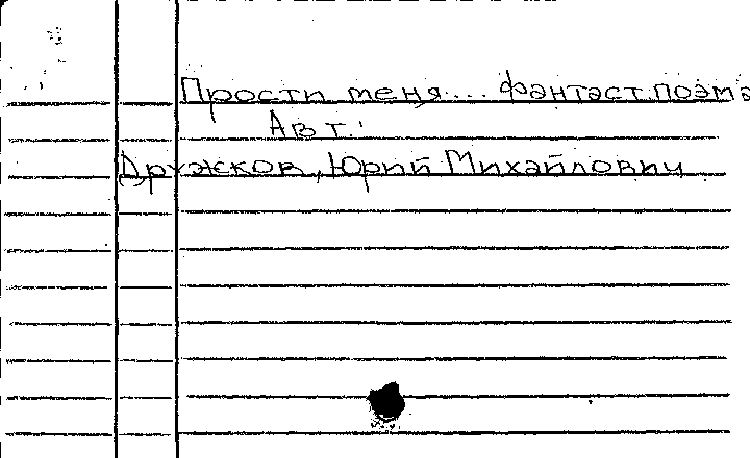 Прости меня... фантаст.поэма
Авт.:
Дружков, Юрий Михайлович